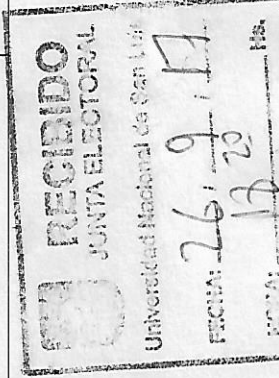 RECIBIDO
JUNTA ELECTORAL
Universidad Nacional de San Luis
FECHA: 26 / 9 / 17
HORA: 12 20 Hs.